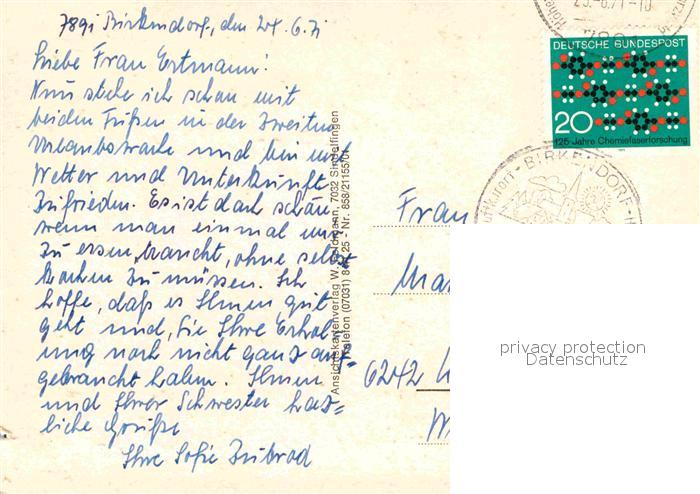 7891 Birkendorf, den 24.6.71
Liebe Frau Ertmann!
Nun stehe ich schon mit
beiden Füßen in der zweiten
Urlaubswoche und bin mit
Wetter und Unterkunft
zufrieden. Es ist doch schön
wenn man einmal nur
zu essen braucht, ohne selbst
kochen zu müssen. Ich
hoffe, daß es Ihnen gut
geht und, Sie Ihre Erhol=
ung noch nicht ganz auf=
gebraucht haben. Ihnen
und Ihrer Schwester herz=
liche Grüße
Ihre Sofie Zubrod
Ansichtskartenverlag W. 7032 Sindelfingen
Telefon (07031) - Nr. 858/21155/01
DEUTSCHE BUNDESPOST
20
125 Jahre Chemiefaserforschung
Luftkurort - BIRKENDORF - H
Frau
6242
privacy protection
Datenschutz